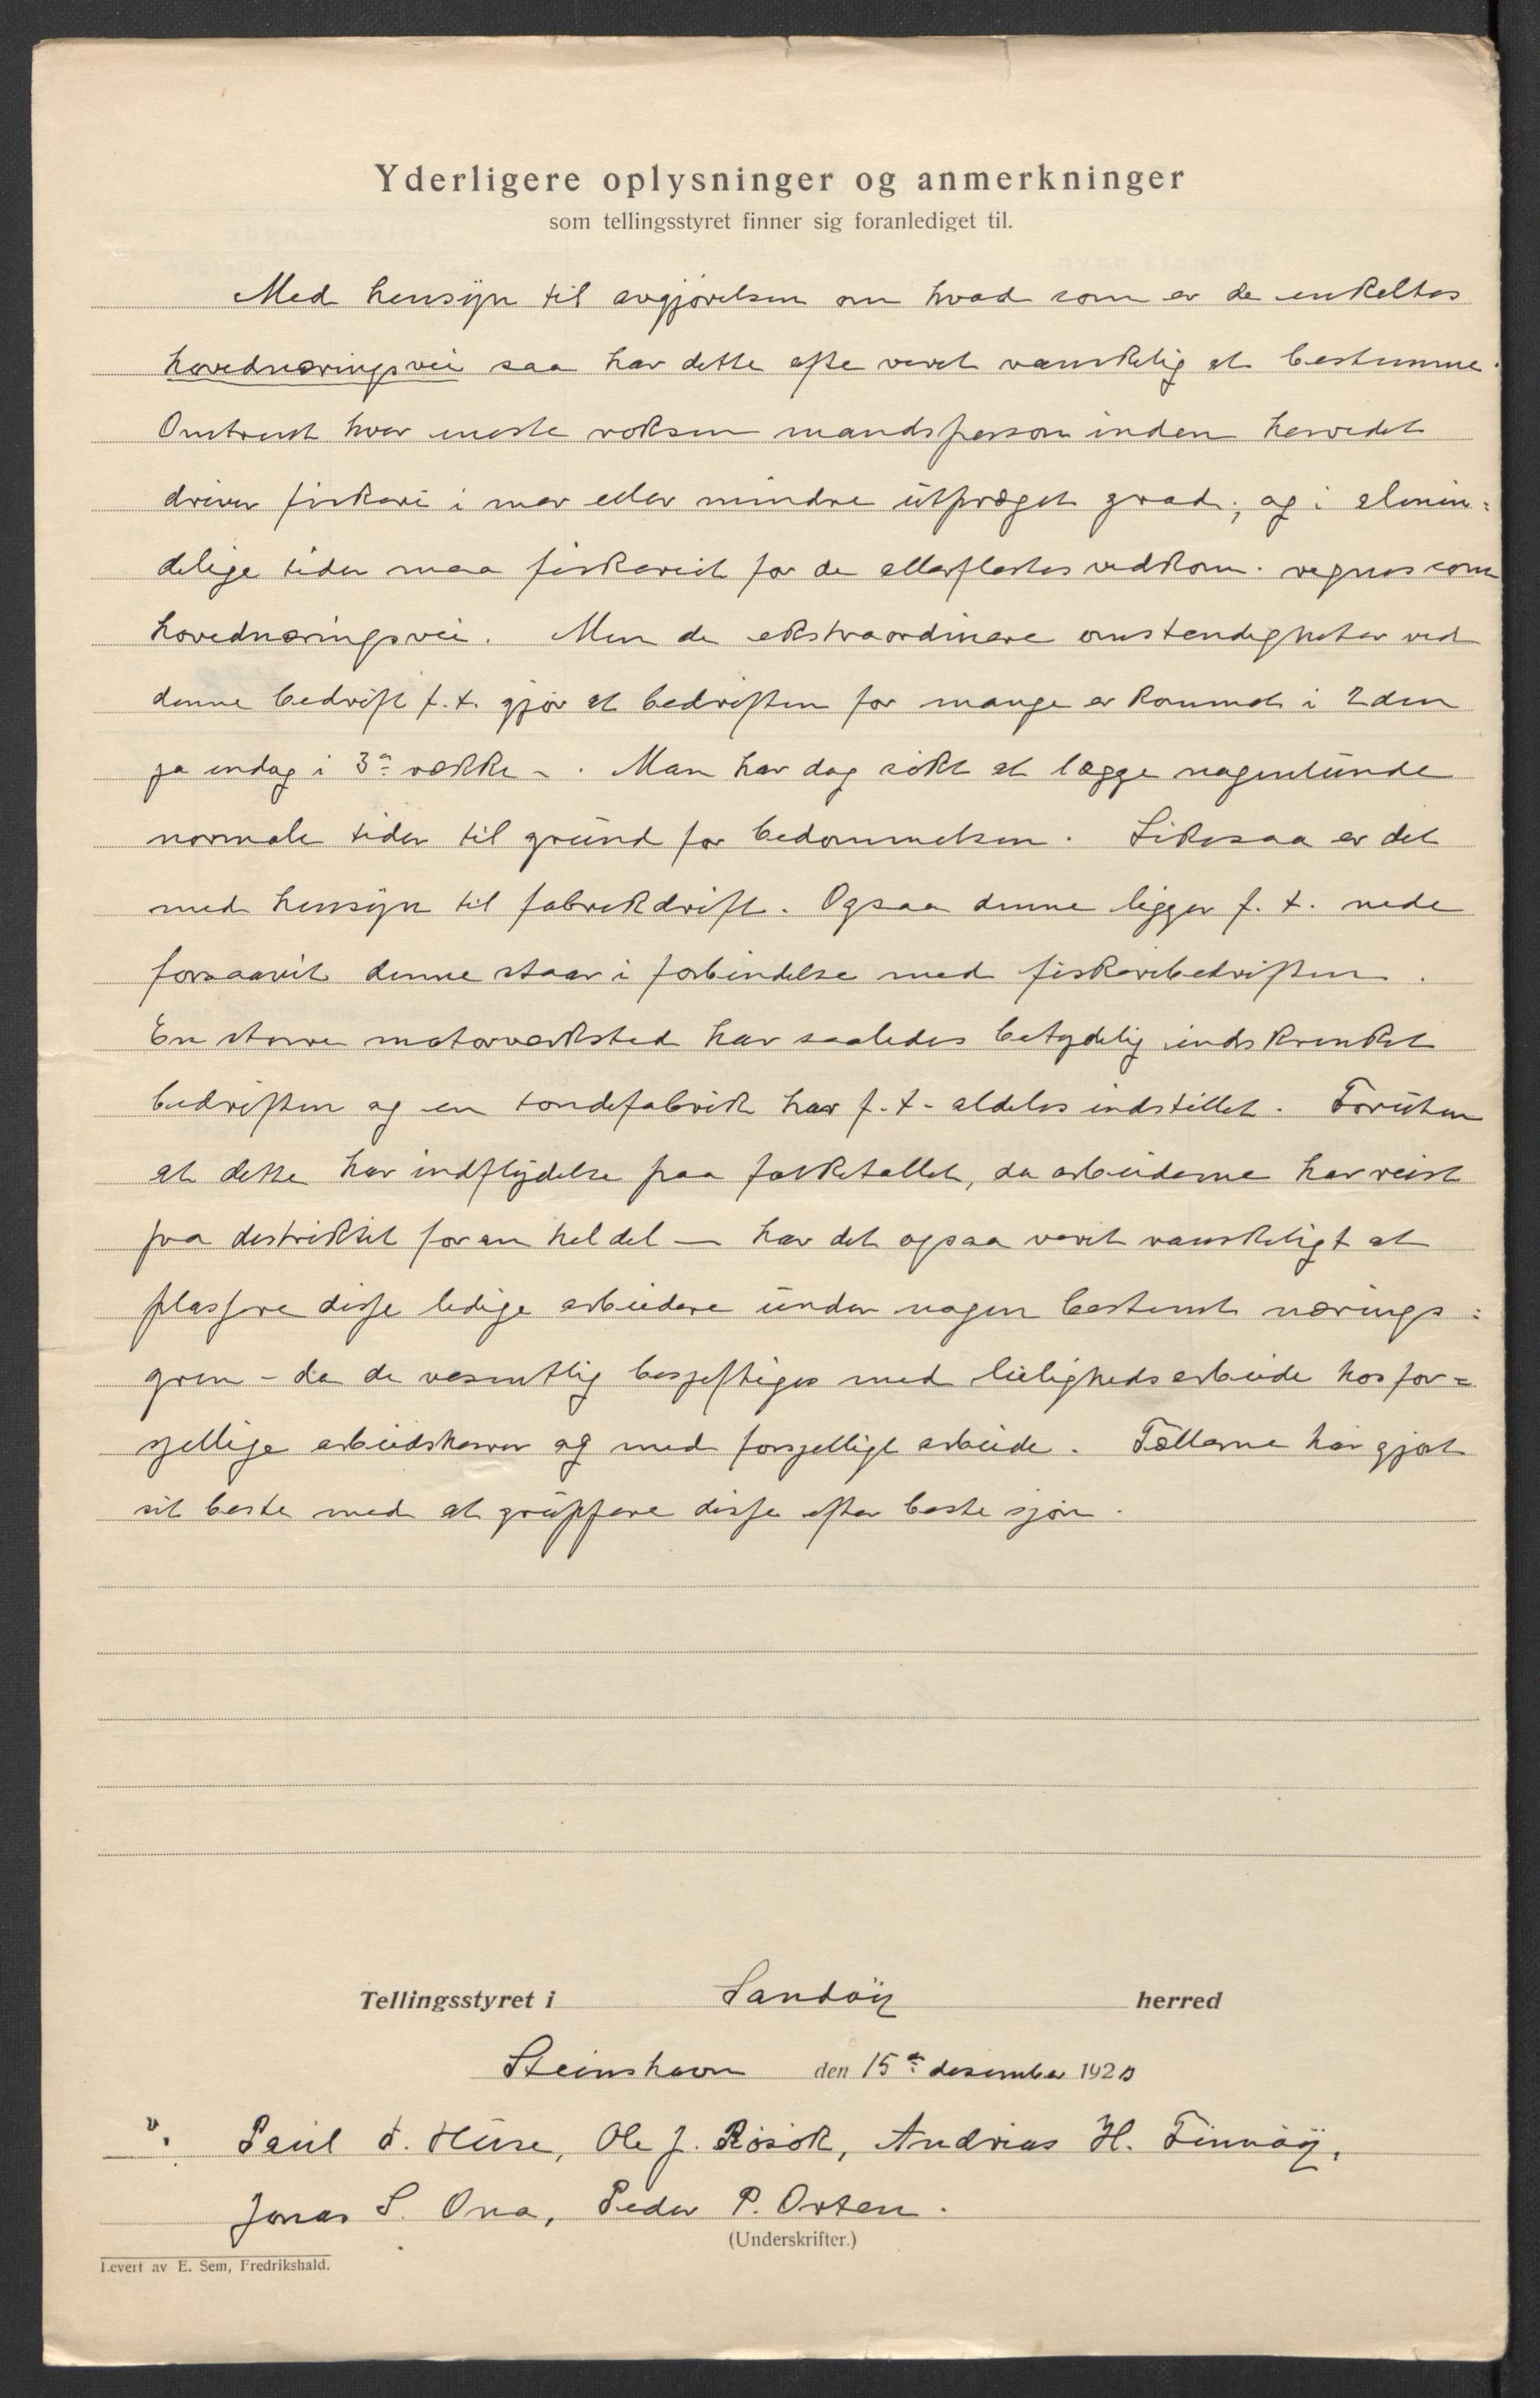 Yderligere oplysninger og anmerkninger
som tellingsstyret finner sig foranlediget til.
Med hensyn til avgjørelsen om hvad som er de enkeltes
hovednæringsvei saa har dette ofte været vanskelig at bestemme.
Omtrent hver eneste voksen mandsperson inden herredet
driver fiskeri i mer eller mindre utpræget grad; og i almin:
delige tider maa fiskeriet for de allerflestes vedkom. regnes som
hovednæringsvei. Men de ekstraordinære omstendigheter ved
denne bedrift f.t. gjør at bedriften for mange er kommet i 2den
ja endog i 3= række -. Man har dog søkt at lægge nogenlunde
normale tider til grund for bedømmelsen. Likesaa er det
med hensyn til fabrikdrift. Ogsaa denne ligger f.t. nede
forsaavit denne staar i forbindelse med fiskeribedriften.
En større motorverksted har saaledes betydelig indskrenket
bedriften og en tøndefabrik har f.t. aldeles indstillet. Foruten
at dette har indflydelse paa folketallet, da arbeiderne har reist
fra distriktet for en hel del — har det ogsaa været vanskeligt at
plassere disse ledige arbeidere under nogen bestemt nærings:
gren - da de vesentlig besjeftiges med leilighedsarbeide hos for=
sjellige arbeidsherrer og med forsjelligt arbeide. Tællerne har gjort
sit beste med at gruppere disse efter beste sjøn.
Tellingsstyret i Sandøy herred
Steinshavn den 15de desember 1920
Paul O. Huse, Ole J. Røsok, Andreas H. Finnøy,
Jonas S. Ona, Peder P. Orten.
(Underskrifter.)
Levert av E. Sem, Fredrikshald.